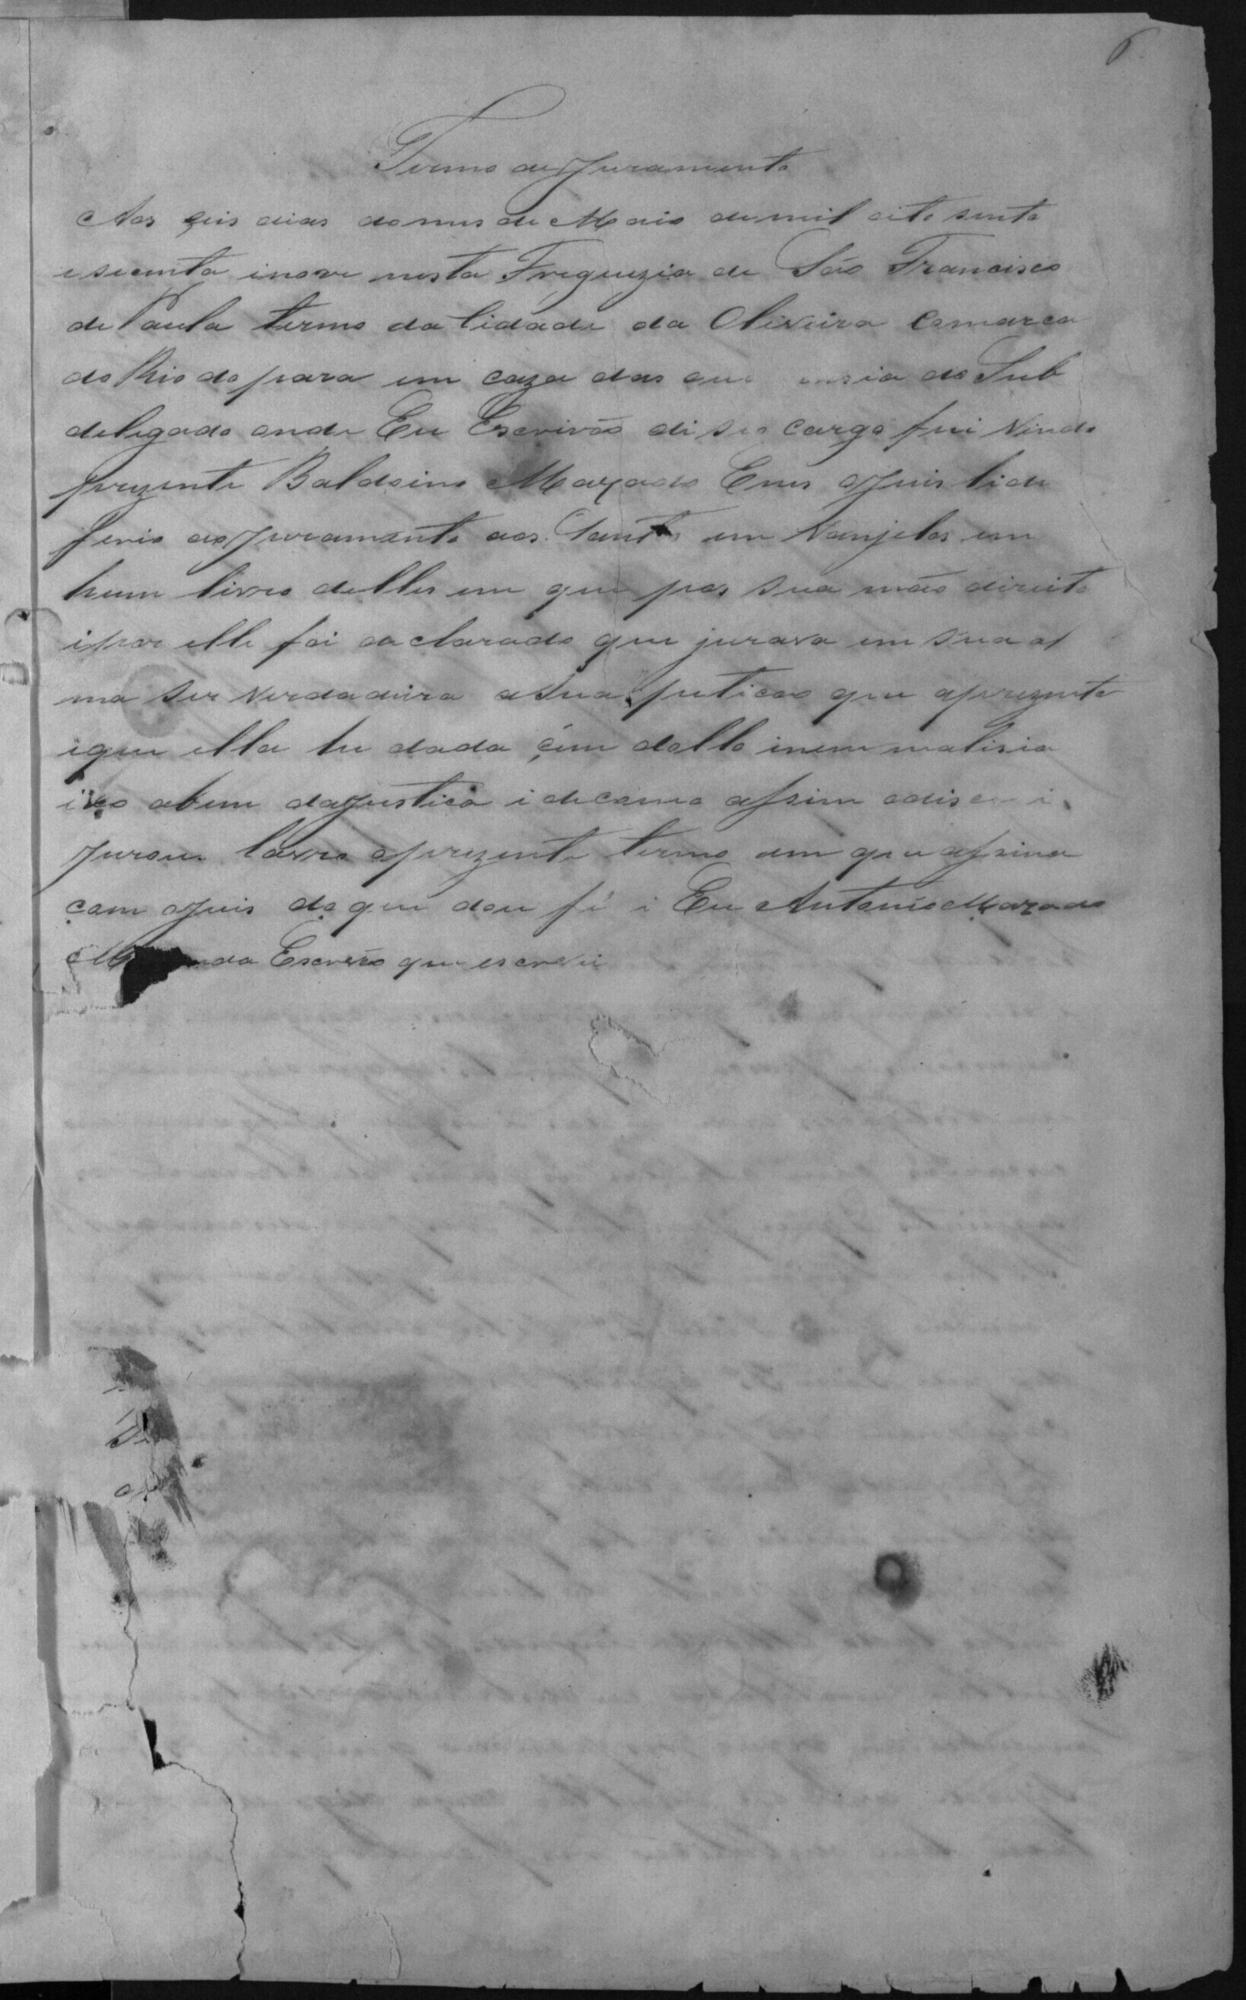 6
Termo de Juramento
Aos seis dias do mes de Maio de mil oito sento
e secenta inove nesta Freguezia de São Francisco
de Paula termo da Cidade da Oliveira Comarca
do Rio do para em caza das au encia do Sub
delegado onde Eu Escrivão di seo cargo fui vindo
prezente Baldoino Maxado Enes o Juis li de
ferio o Juramento aos Santos em Vanjelos em
hum livro delles em que pos sua mão direita
i por elle foi declarado que jurava em sua al
ma ser verdadeira a sua peticão que aprezenta
i que ella he dada çem dollo inem malisia
i so abem da Justica i de como assim o dise i
Jurou lavro o prezente termo em que assina
com o Juis do que dou fé i Eu Antonio Maxado
M nda Escrivão que escrevi